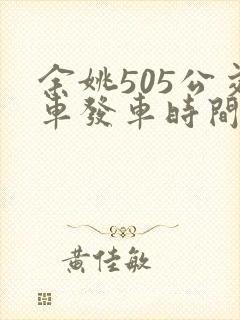 余姚505公交
車發車時間
黃佳敏